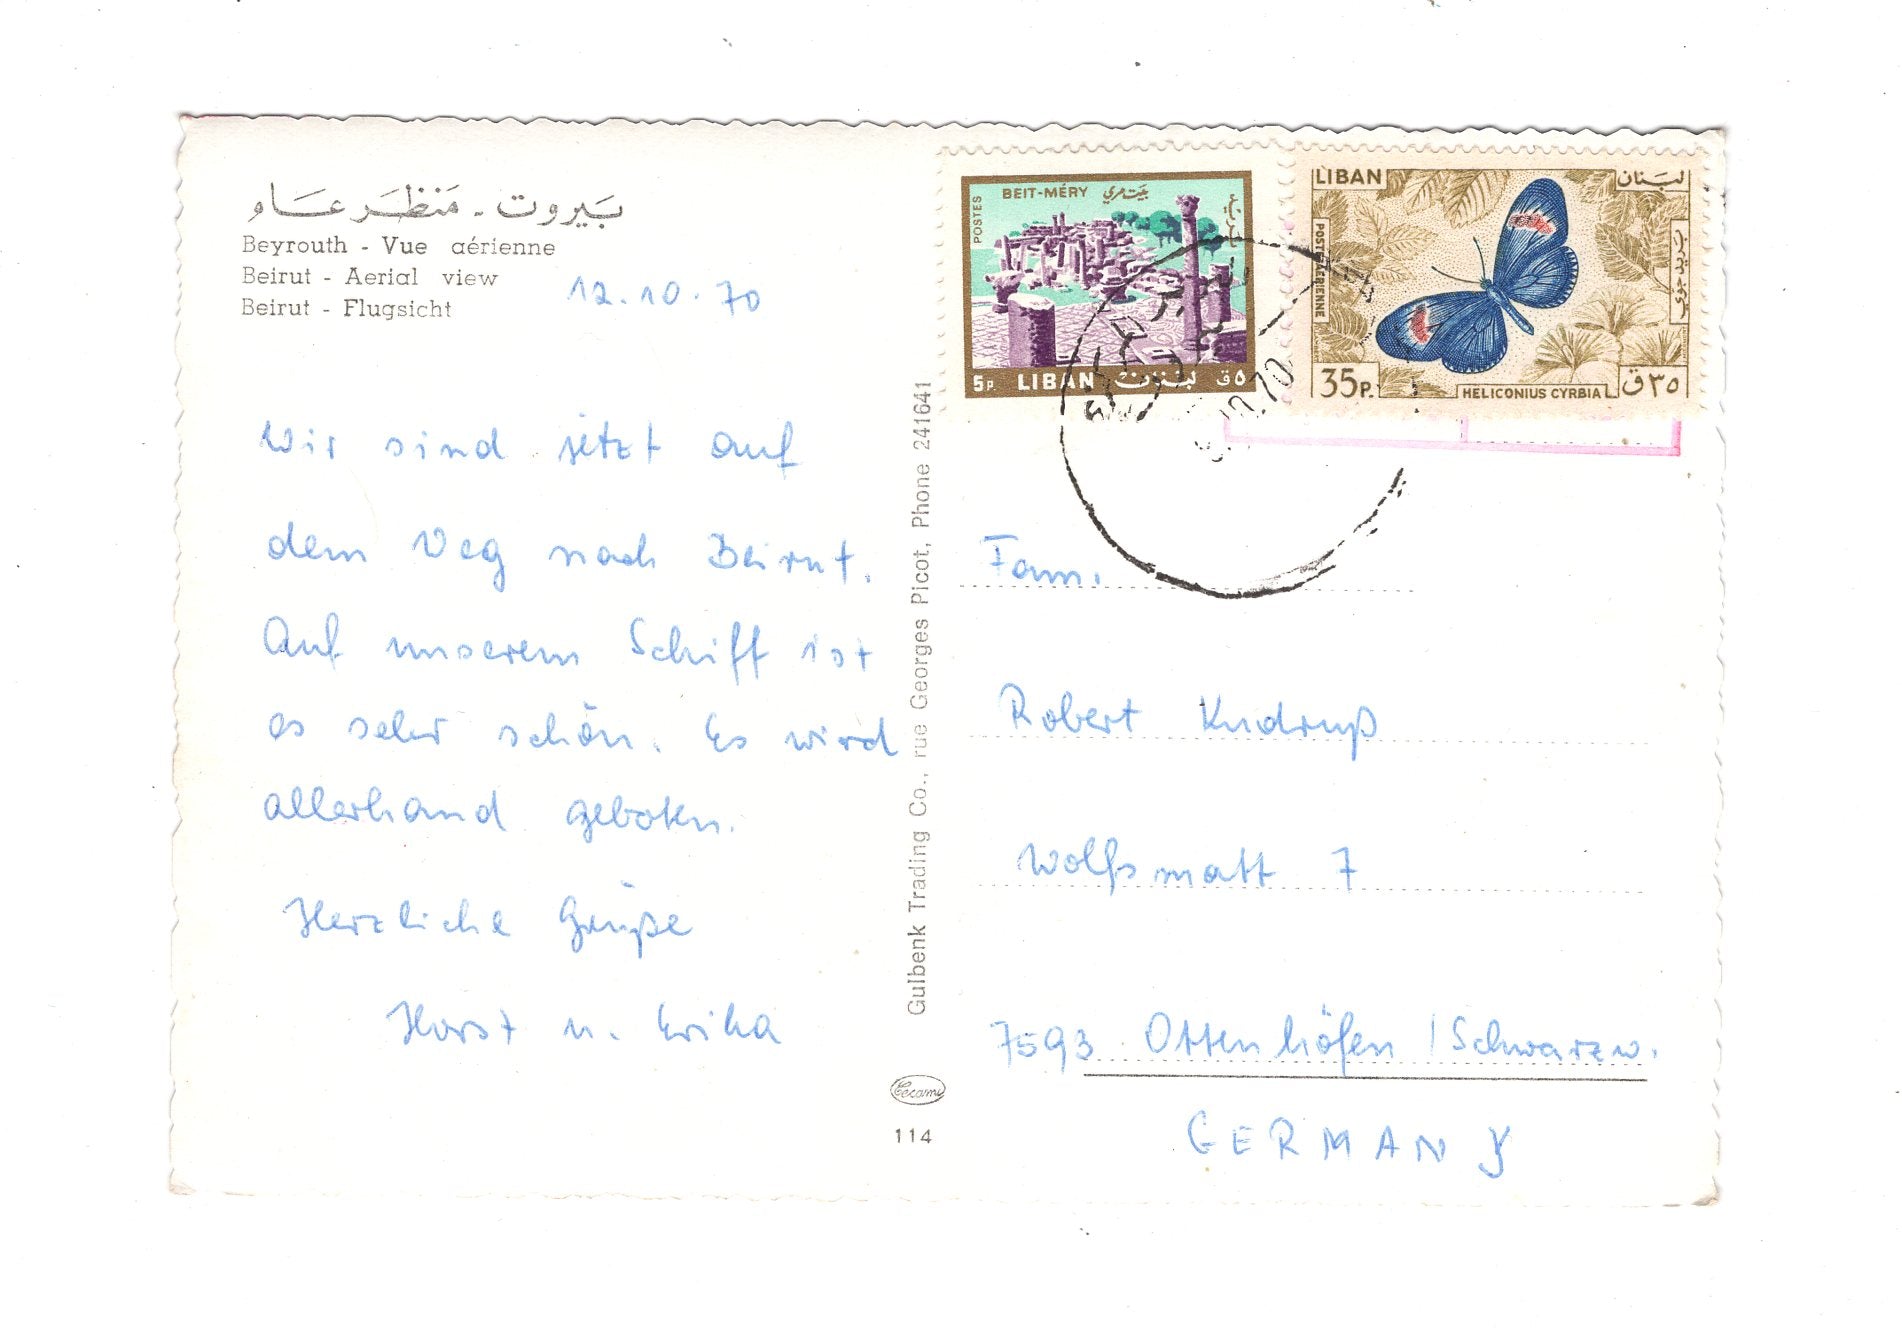 بيروت - منظر عاو
Beyrouth - Vue aérienne
Beirut - Aerial view
Beirut - Flugsicht
12.10.70
Wir sind jetzt auf
dem Weg nach Beirut.
Auf unserem Schiff ist
es sehr schön. Es wird
allerhand geboten.
Herzliche Grüße
Horst u. Erika
Gulbenk Trading Co., rue Georges Picot, Phone 241641
Tecami
114
BEIT-MÉRY بيت مري
POSTES
5P. LIBAN لبنان ق ٥
LIBAN لبنان
POSTE AÉRIENNE
بريد جوي
35P. HELICONIUS CYRBIA ق ٣٥
70
Fam.
Robert Kudruß
Wolfsmatt 7
7593 Ottenhöfen / Schwarzw.
GERMANY